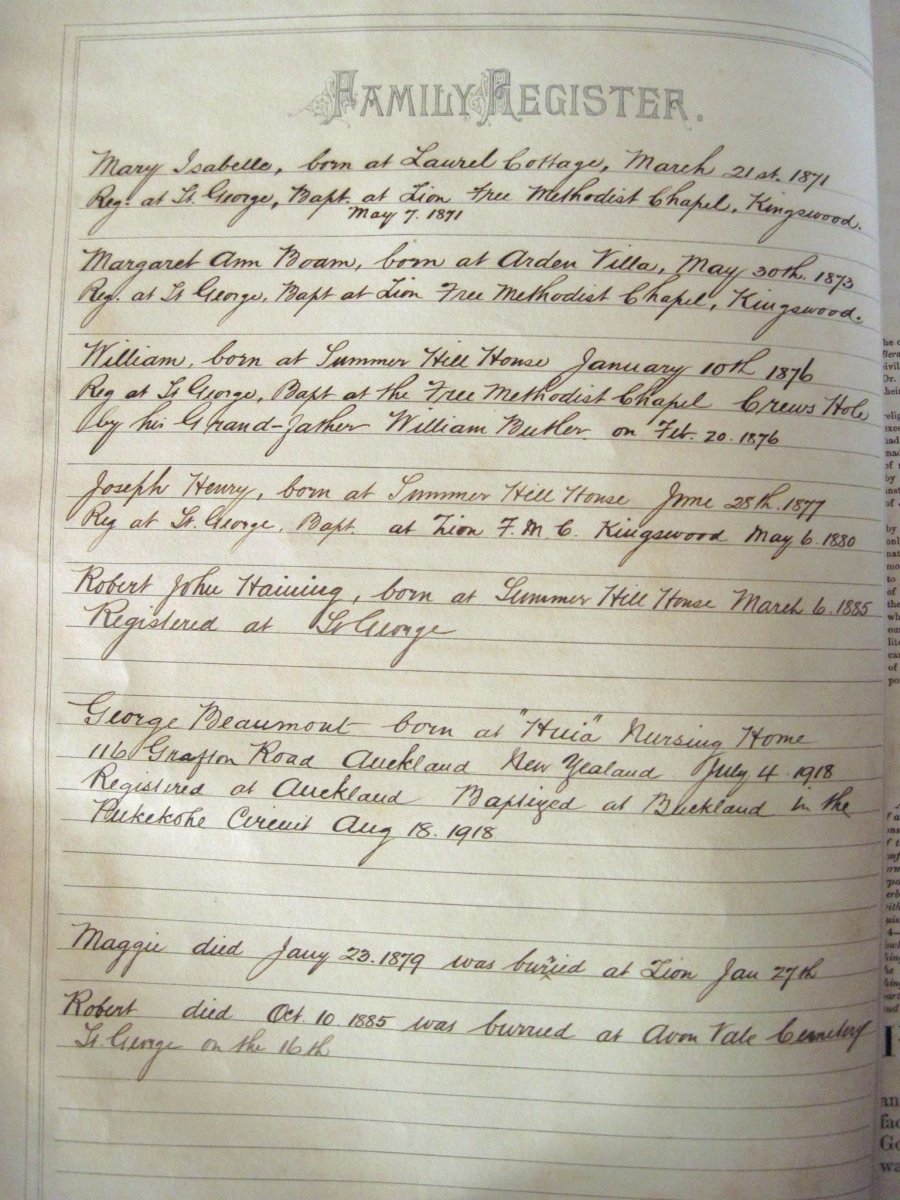 FAMILY REGISTER.
Mary Isabelle, born at Laurel Cottage, March 21st. 1871
Reg. at St. George, Bapt. at Zion Free Methodist Chapel, Kingswood.
May 7. 1871
Margaret Ann Boam, born at Arden Villa, May 30th. 1873
Reg. at St George, Bapt at Zion Free Methodist Chapel, Kingswood.
William, born at Summer Hill House January 10th 1876
Reg at St George, Bapt at the Free Methodist Chapel Crews Hole
by his Grand-father William Butler on Feb. 20. 1876
Joseph Henry, born at Summer Hill House June 28th. 1877
Reg at St. George, Bapt. at Zion F. M. C. Kingswood May 6. 1880
Robert John Haining, born at Summer Hill House March 6. 1885
Registered at St George
George Beaumont born at "Huia" Nursing Home
116 Grafton Road Auckland New Zealand July 4. 1918
Registered at Auckland Baptized at Buckland in the
Pukekohe Circuit Aug 18. 1918
Maggie died Jany 23. 1879 was buried at Zion Jan 27th
Robert died Oct. 10 1885 was burried at Avon Vale Cemetery
St. George on the 16th